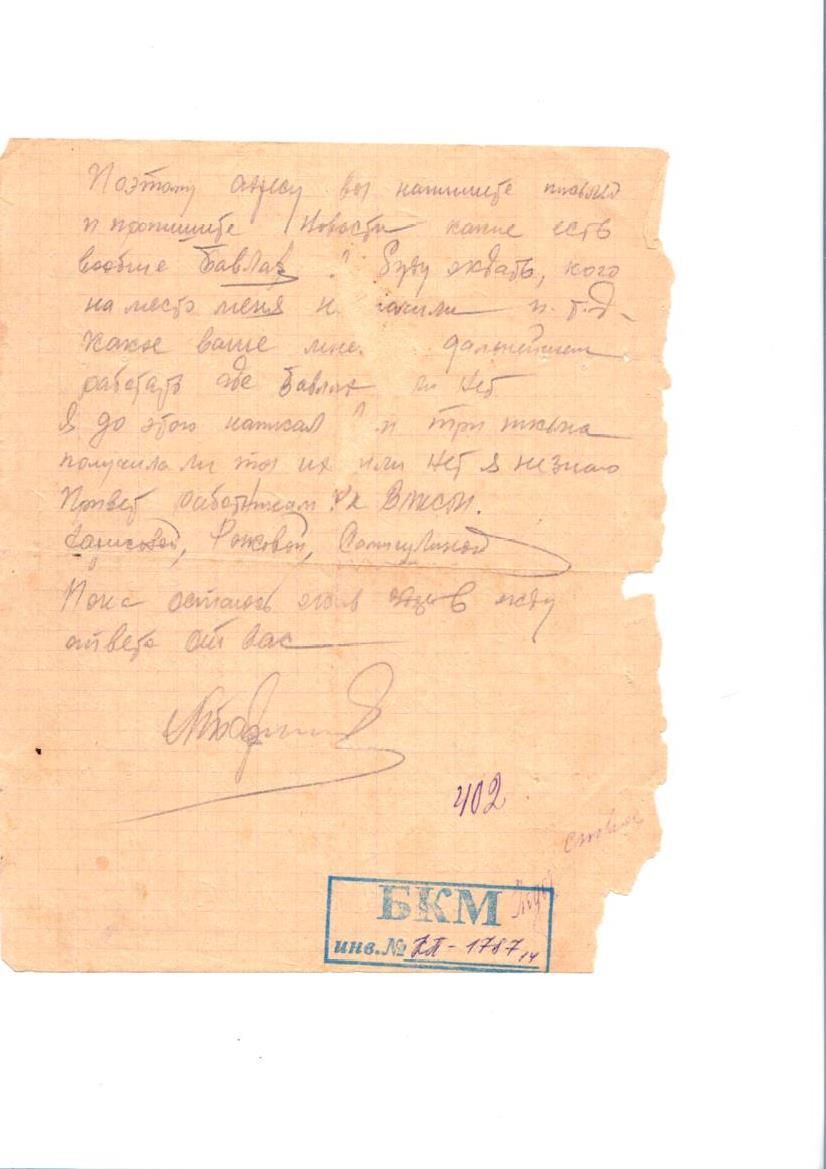 Поэтому адресу вы напишите письмо
и пропишите Новости какие есть
вообще Бавлах. Буду ждать, кого
на место меня и т.д.
Какое ваше мне. дальнейшем
работать где Бавлах ли нет
Я до этого написал и три письма
получила ли ты их или нет я незнаю
Привет работникам
Фоковой,
Пока остаюсь жив жду
ответа от вас
402
БКМ
инв.№ КП-1787 14